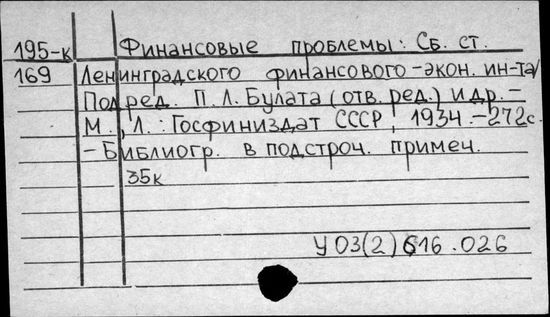 195-к Финансовые проблемы: Сб. ст.
169 Ленинградского финансового-экон. ин-та/
Под ред. П.Л.Булата (отв. ред.) и др.-
М., Л.: Госфиниздат СССР, 1934.-272с.
-Библиогр. в подстроч. примеч.
35к
У03(2)616.026